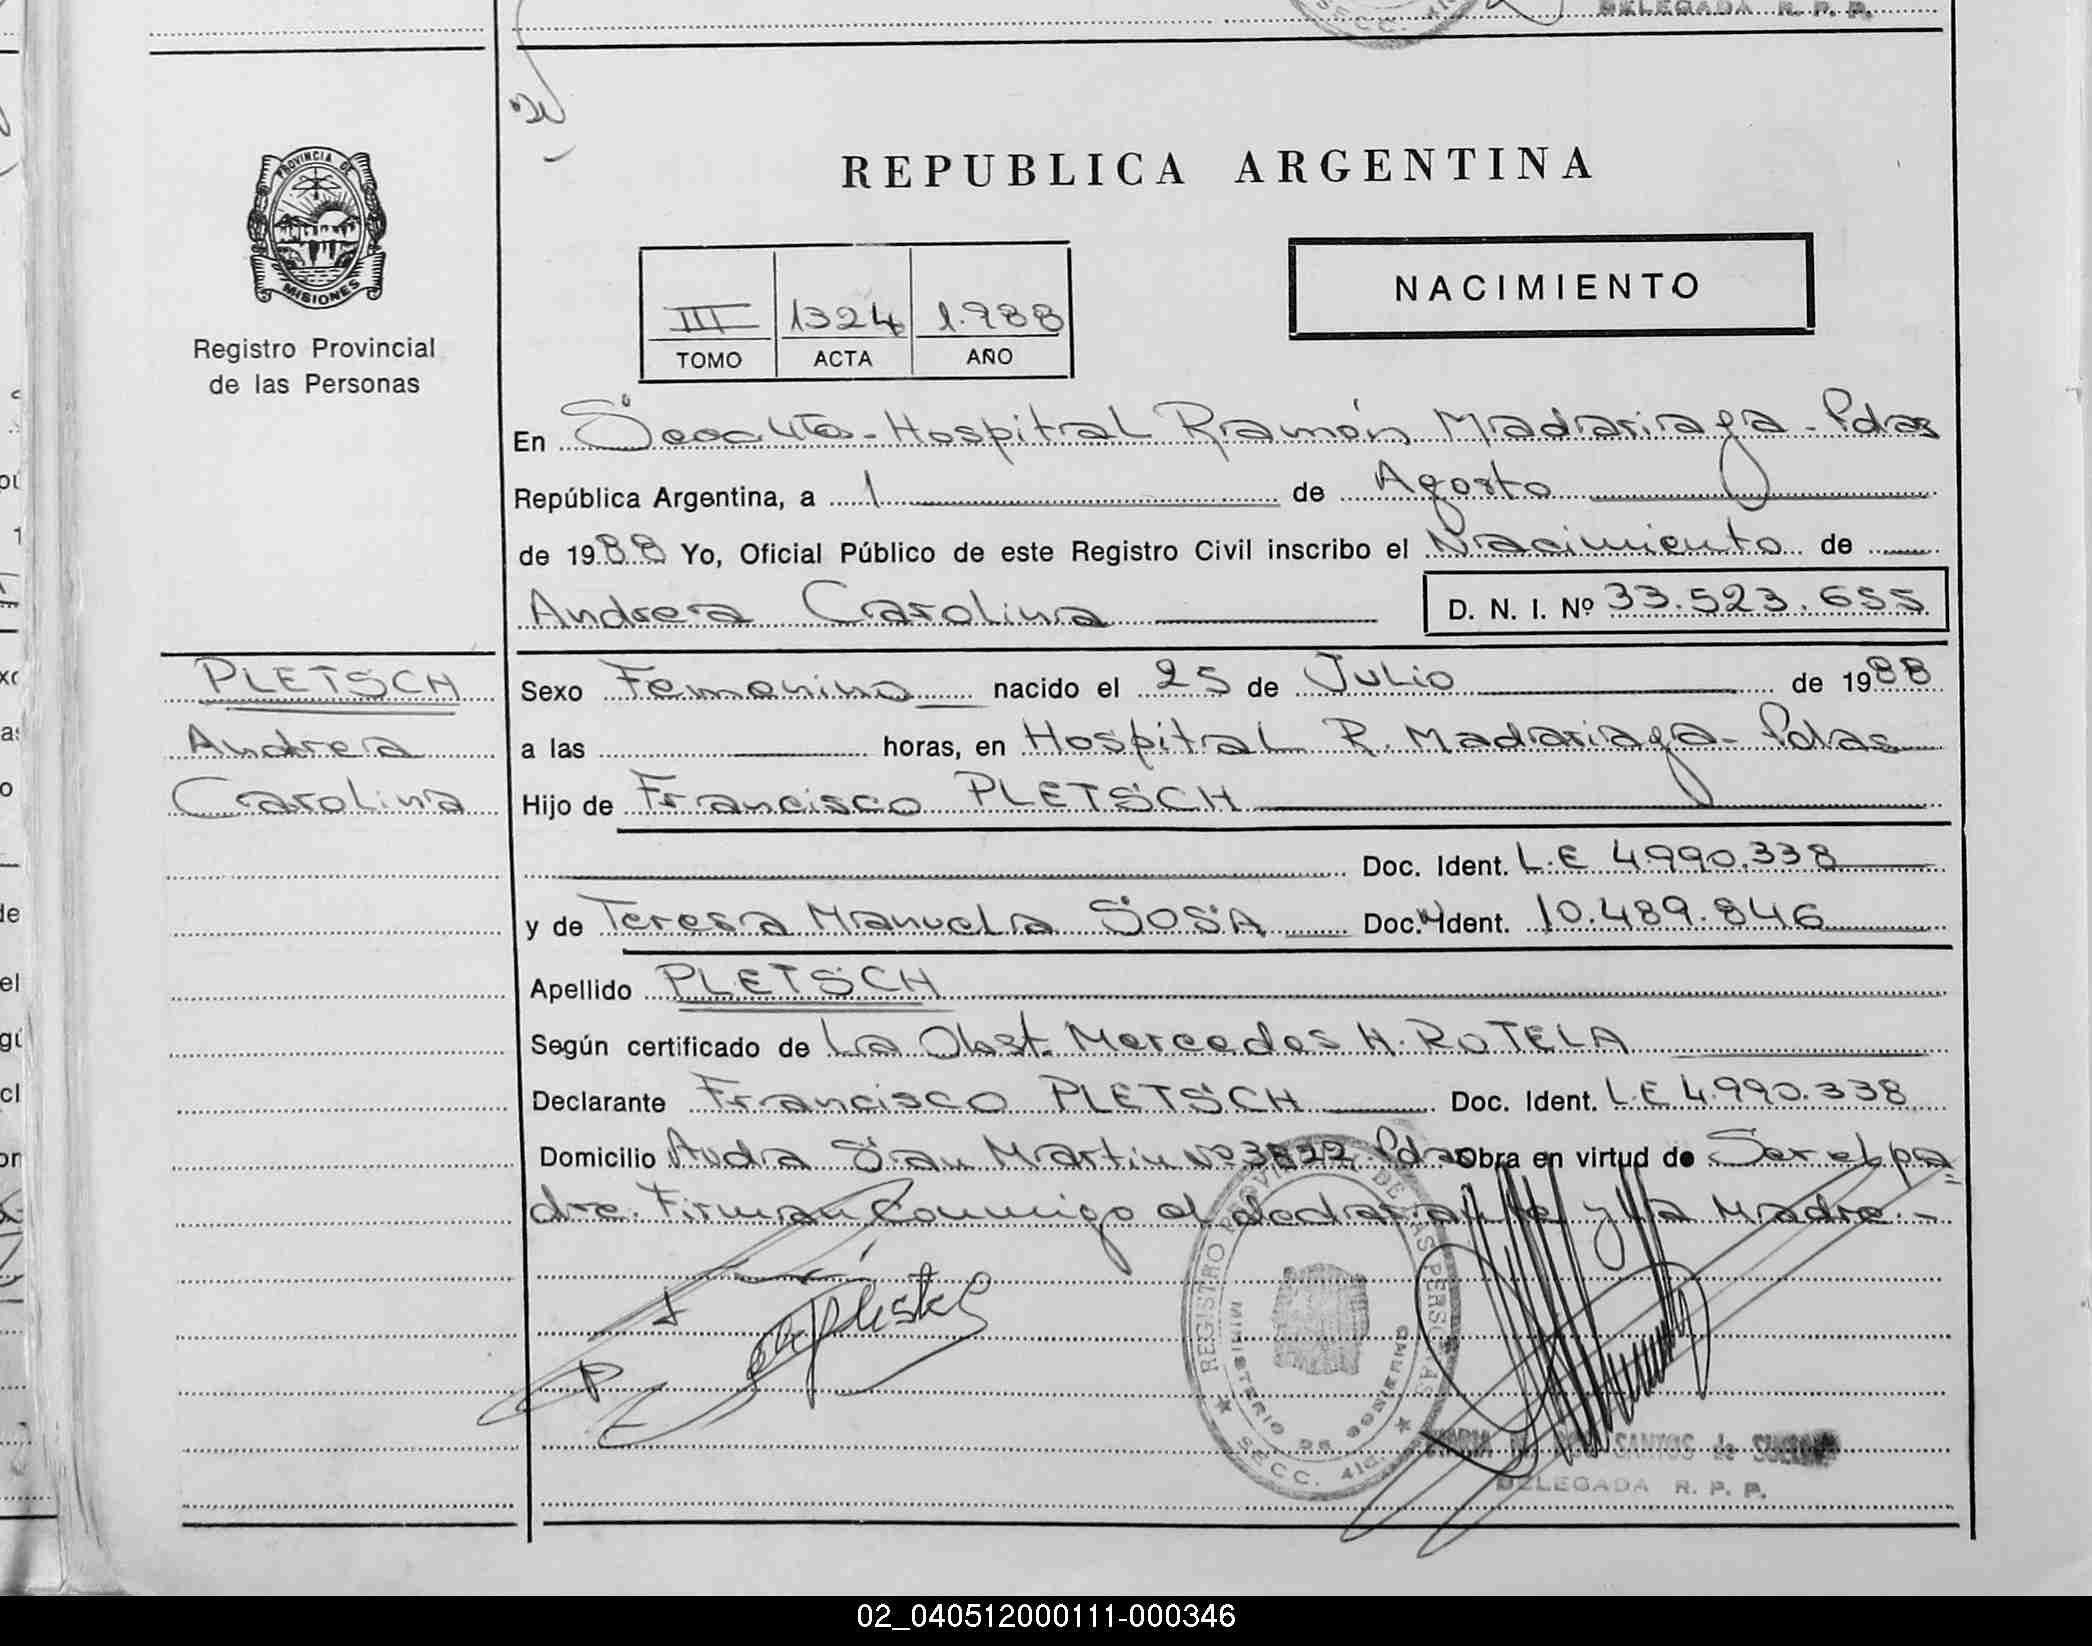 DELEGADA R. P. P.
REPUBLICA ARGENTINA
PROVINCIA DE
MISIONES
Registro Provincial
de las Personas
NACIMIENTO
III 1324 1.988
TOMO ACTA AÑO
En Secc 4ta - Hospital Ramón Madariaga - Pdas
República Argentina, a 1 de Agosto
de 1988 Yo, Oficial Público de este Registro Civil inscribo el Nacimiento de
Andrea Carolina D. N. I. Nº 33.523.655
PLETSCH
Andrea
Carolina
Sexo Femenino nacido el 25 de Julio de 1988
a las horas, en Hospital R. Madariaga - Pdas
Hijo de Francisco PLETSCH
Doc. Ident. L.E 4.990.338
y de Teresa Manuela SOSA Doc. Ident. 10.489.846
Apellido PLETSCH
Según certificado de La Obst. Mercedes H. ROTELA
Declarante Francisco PLETSCH Doc. Ident. L.E 4.990.338
Domicilio Avda San Martin Nº Pdas Obra en virtud de Ser el pa
dre. Firman Conmigo el declarante y la Madre.-
REGISTRO PROVINCIAL DE LAS PERSONAS
MINISTERIO DE GOBIERNO
SECC. 4ta.
SANTOS de
DELEGADA R. P. P.
02_040512000111-000346